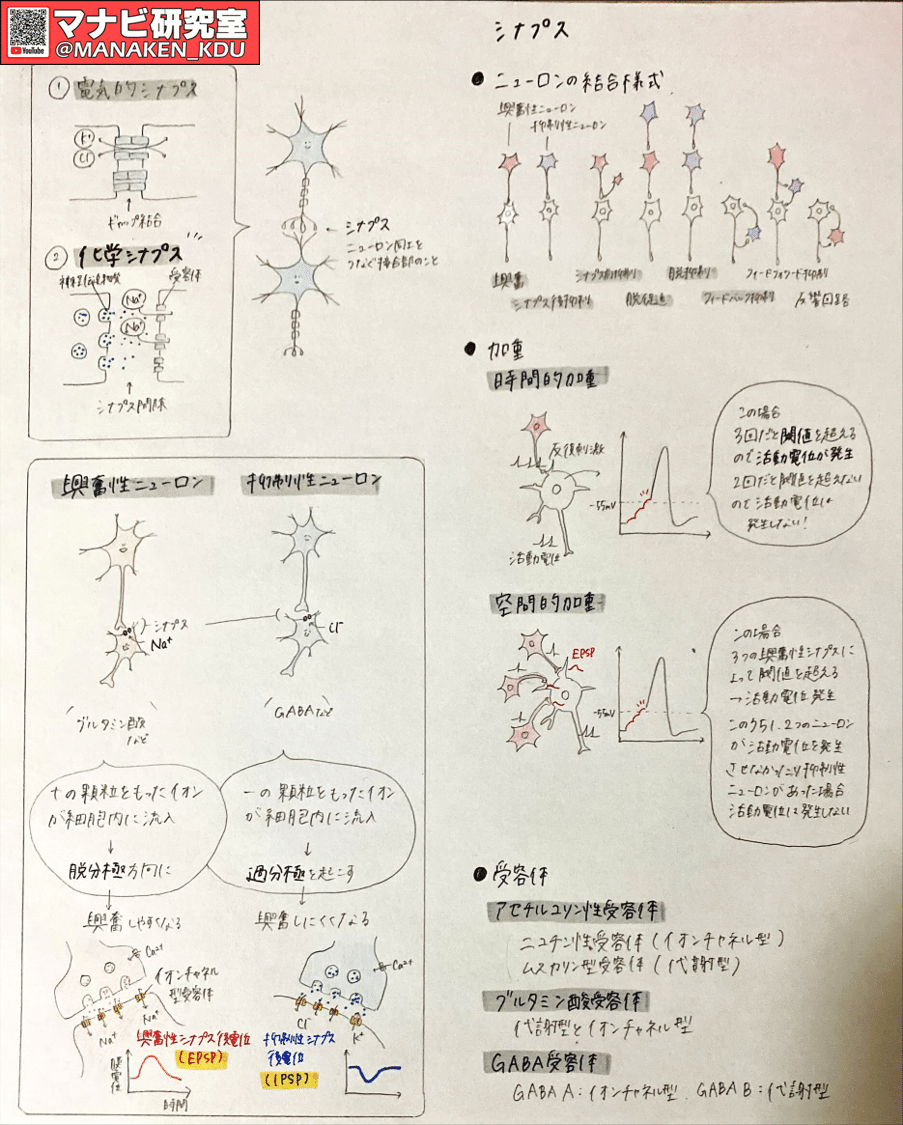 マナビ研究室
@MANAKEN_KDU
YouTube
シナプス
① 電気的シナプス
K⁺
Cl⁻
ギャップ結合
② 化学シナプス
神経伝達物質
受容体
Na⁺
Na⁺
シナプス間隙
シナプス
ニューロン同士を
つなぐ接合部のこと
興奮性ニューロン
シナプス
Na⁺
グルタミン酸
など
抑制性ニューロン
Cl⁻
GABAなど
+の顆粒をもったイオン
が細胞内に流入
↓
脱分極方向に
興奮しやすくなる
−の顆粒をもったイオン
が細胞内に流入
↓
過分極を起こす
興奮しにくくなる
Ca²⁺
イオンチャネル
型受容体
Na⁺
Na⁺
興奮性シナプス後電位
(EPSP)
膜電位
時間
Ca²⁺
Cl⁻
K⁺
抑制性シナプス
後電位
(IPSP)
● ニューロンの結合様式
興奮性ニューロン
抑制性ニューロン
興奮
シナプス後抑制
シナプス前抑制
脱促進
脱抑制
フィードバック抑制
フィードフォワード抑制
反響回路
● 加重
時間的加重
反復刺激
活動電位
-55mV
この場合
3回だと閾値を超える
ので活動電位が発生
2回だと閾値を超えない
ので活動電位は
発生しない!
空間的加重
EPSP
-55mV
この場合
3つの興奮性シナプスに
よって閾値を超える
→活動電位発生
このうち1,2つのニューロン
が活動電位を発生
させなかったり抑制性
ニューロンがあった場合
活動電位は発生しない
● 受容体
アセチルコリン性受容体
ニコチン性受容体(イオンチャネル型)
ムスカリン型受容体(代謝型)
グルタミン酸受容体
代謝型とイオンチャネル型
GABA受容体
GABA A:イオンチャネル型、GABA B:代謝型